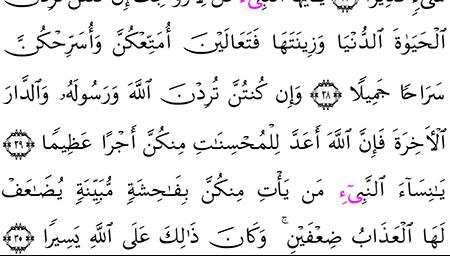 الْحَيَوٰةَ اَلدُّنْيَا وَزِينَتَهَا فَتَعَالَيْنَ أُمَتِّعْكُنَّ وَأُسَرِّحْكُنَّ
سَرَاحًا جَمِيلًا ٢٨ وَإِن كُنتُنَّ تُرِدْنَ اَللَّهَ وَرَسُولَهُۥ وَالدَّارَ
اَلْأَخِرَةَ فَإِنَّ اَللَّهَ أَعَدَّ لِلْمُحْسِنَٰتِ مِنكُنَّ أَجْرًا عَظِيمًا ٢٩
يَٰنِسَآءَ اَلنَّبِيٓءِ مَن يَأْتِ مِنكُنَّ بِفَٰحِشَةٍ مُّبَيِّنَةٍ يُضَٰعَفْ
لَهَا اَلْعَذَابُ ضِعْفَيْنِ ۚ وَكَانَ ذَٰلِكَ عَلَى اَللَّهِ يَسِيرًا ٣٠